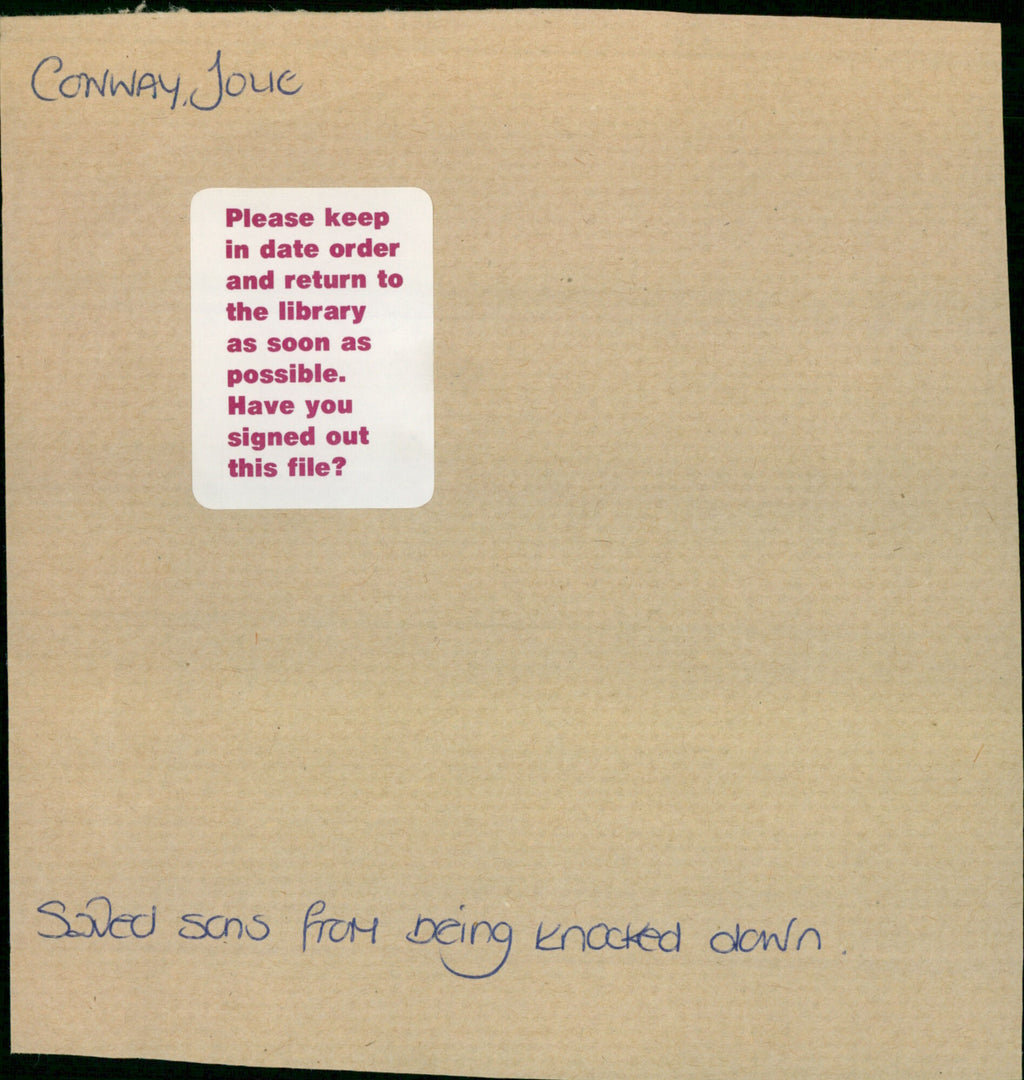 CONWAY, JOLIE
Please keep
in date order
and return to
the library
as soon as
possible.
Have you
signed out
this file?
Saved sons from being knocked down.